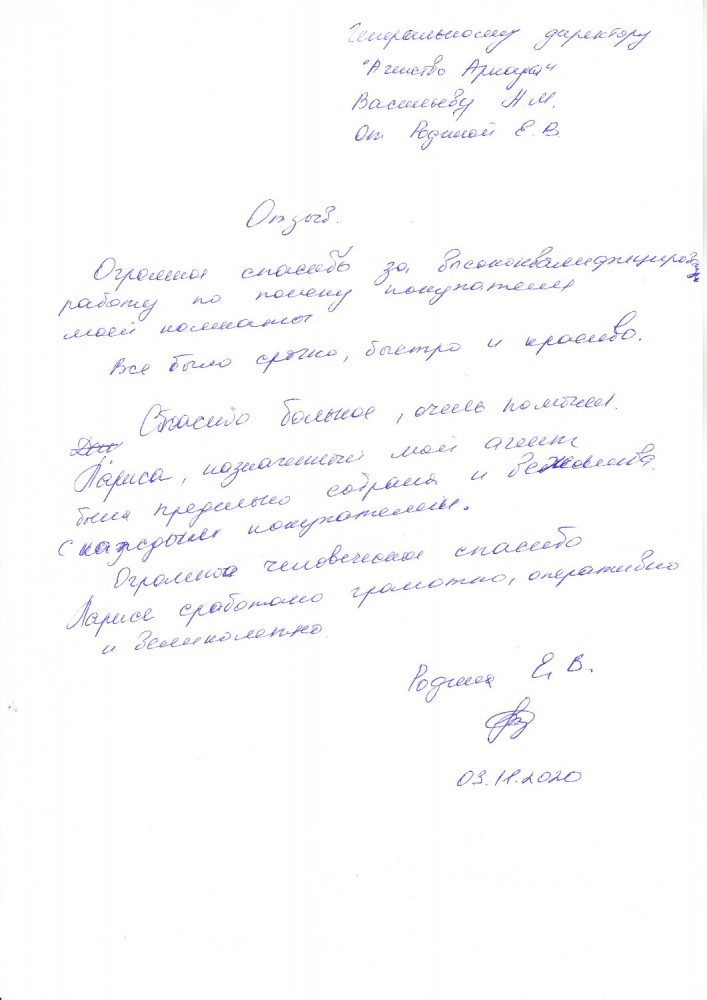 Генеральному директору
"Агенство Аркада"
Васильеву Н.М.
От Родиной Е.В
Отзыв.
Огромное спасибо за высококвалифициров
работу по поиску покупателя
моей комнаты
Все было срочно, быстро и красиво.
Спасибо большое, очень помогли.
Лариса, назначенный мой агент
была предельно собрана и вежлива
с каждым покупателем.
Огромное человеческое спасибо
Ларисе сработано грамотно, оперативно
и великолепно
Родина Е, В.
03.11.2020